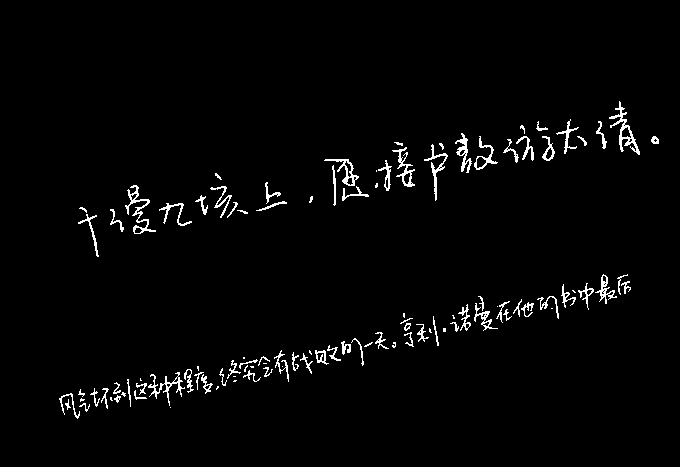 汗漫九垓上，愿接卢敖游太清。
风气坏到这种程度，终究会有战败的一天。亨利·诺曼在他的书中最后